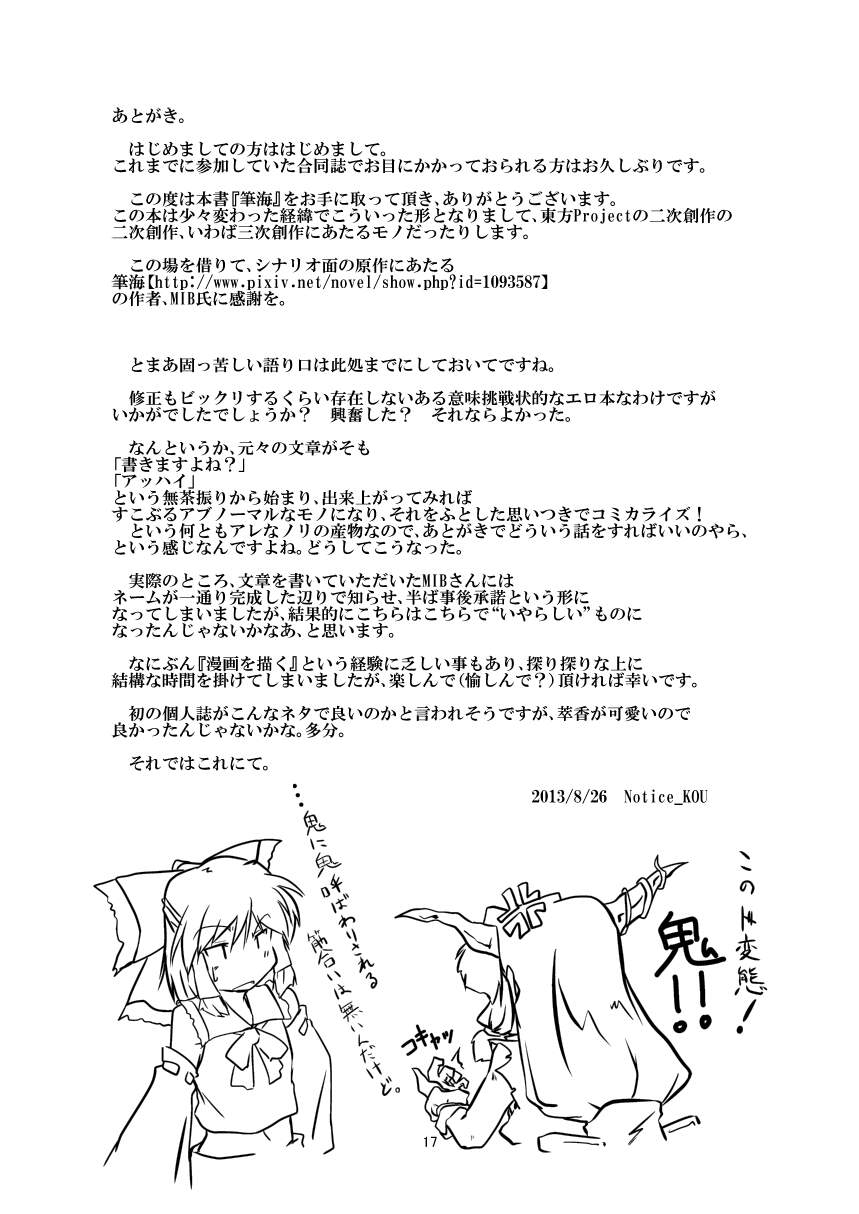 あとがき。
はじめましての方ははじめまして。
これまでに参加していた合同誌でお目にかかっておられる方はお久しぶりです。
この度は本書『筆海』をお手に取って頂き、ありがとうございます。
この本は少々変わった経緯でこういった形となりまして、東方Projectの二次創作の
二次創作、いわば三次創作にあたるモノだったりします。
この場を借りて、シナリオ面の原作にあたる
筆海【http://www.pixiv.net/novel/show.php?id=1093587】
の作者、MIB氏に感謝を。
とまあ固っ苦しい語り口は此処までにしておいてですね。
修正もビックリするくらい存在しないある意味挑戦状的なエロ本なわけですが
いかがでしたでしょうか？　興奮した？　それならよかった。
なんというか、元々の文章がそも
「書きますよね？」
「アッハイ」
という無茶振りから始まり、出来上がってみれば
すこぶるアブノーマルなモノになり、それをふとした思いつきでコミカライズ！
という何ともアレなノリの産物なので、あとがきでどういう話をすればいいのやら、
という感じなんですよね。どうしてこうなった。
実際のところ、文章を書いていただいたMIBさんには
ネームが一通り完成した辺りで知らせ、半ば事後承諾という形に
なってしまいましたが、結果的にこちらはこちらで“いやらしい”ものに
なったんじゃないかなあ、と思います。
なにぶん『漫画を描く』という経験に乏しい事もあり、探り探りな上に
結構な時間を掛けてしまいましたが、楽しんで（愉しんで？）頂ければ幸いです。
初の個人誌がこんなネタで良いのかと言われそうですが、萃香が可愛いので
良かったんじゃないかな。多分。
それではこれにて。
2013/8/26　Notice_KOU
このド変態！
鬼!!
コキャッ
…鬼に鬼呼ばわりされる
筋合いは無いんだけど。
17